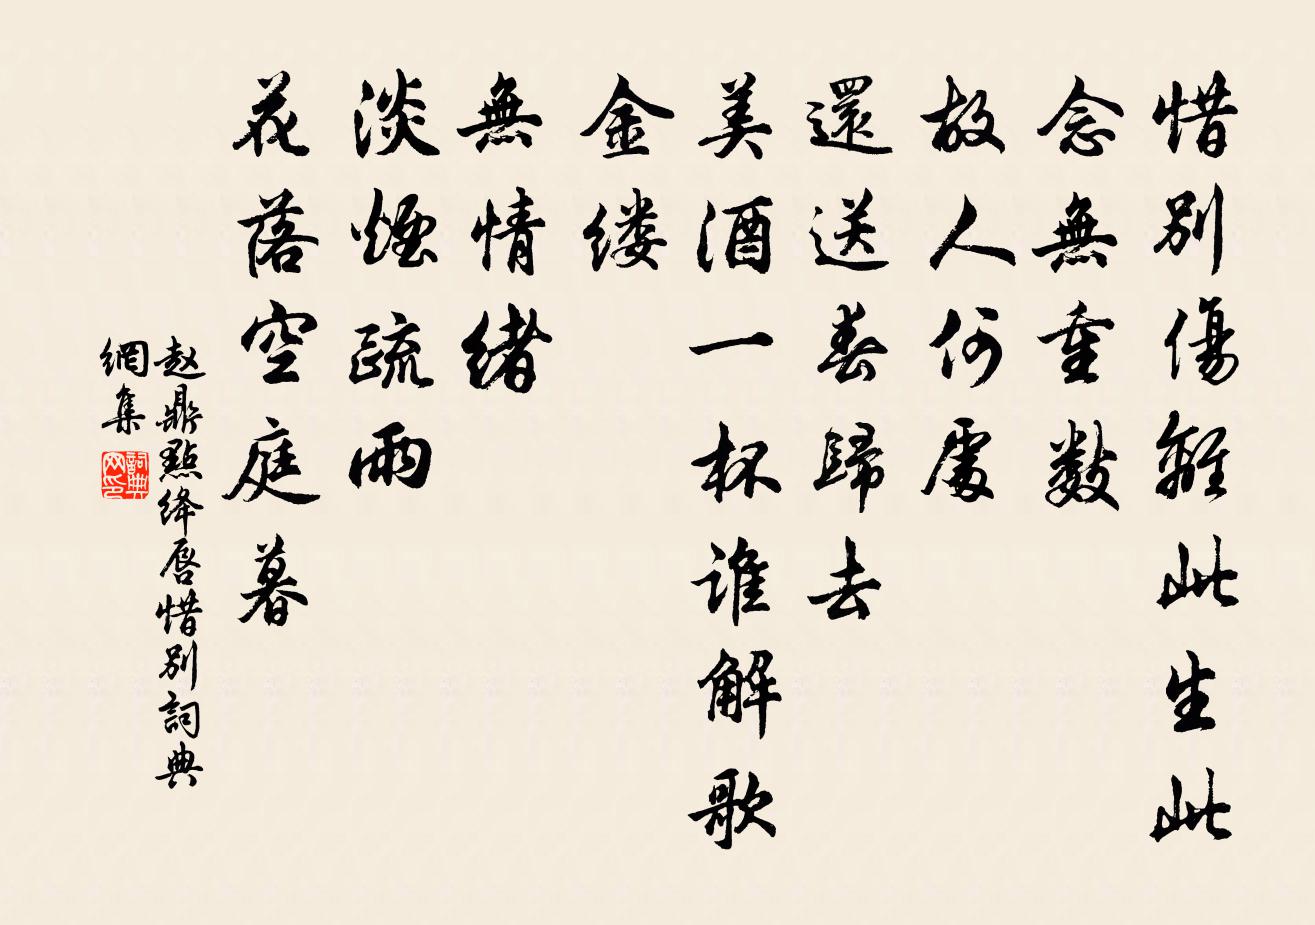 惜別傷離此生此
念無重數
故人何處
還送春歸去
美酒一杯誰解歌
金縷
無情緒
淡煙疏雨
花落空庭暮
赵鼎點絳唇惜別詞典
網集
詞典网印